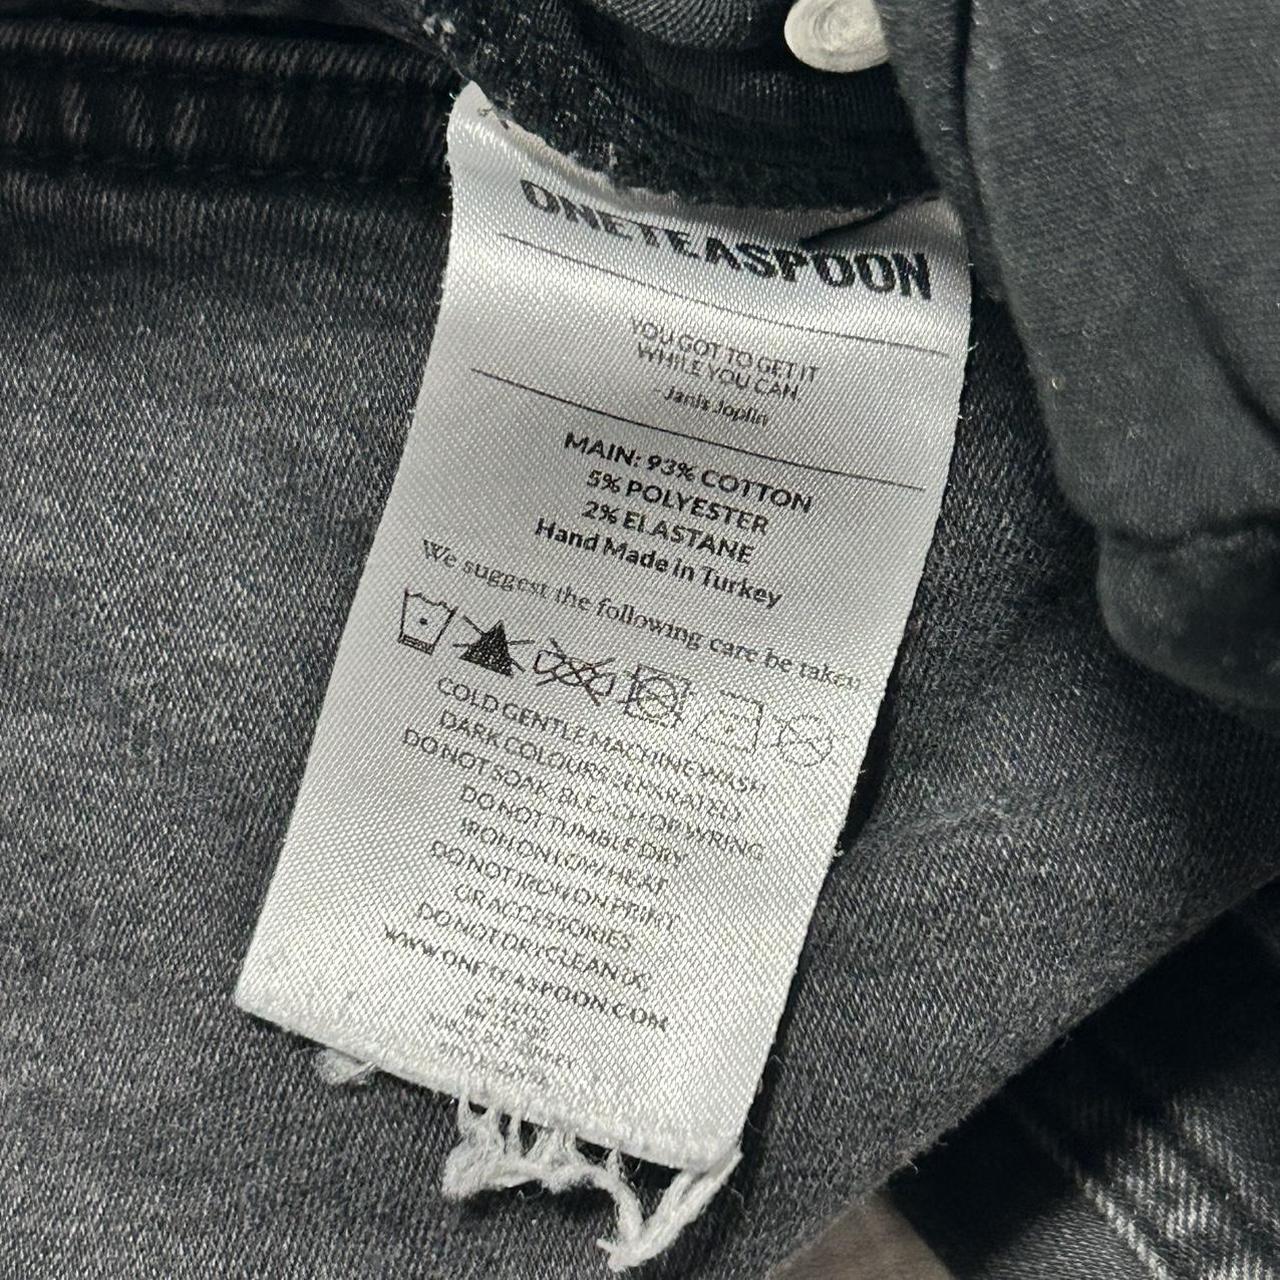 ONETEASPOON
YOU GOT TO GET IT
WHILE YOU CAN.
- Janis Joplin
MAIN: 93% COTTON
5% POLYESTER
2% ELASTANE
Hand Made in Turkey
We suggest the following care be taken
COLD GENTLE MACHINE WASH
DARK COLOURS SEPARATELY
DO NOT SOAK, BLEACH OR WRING
DO NOT TUMBLE DRY
IRON ON LOW HEAT
DO NOT IRON ON PRINT
OR ACCESSORIES
DO NOT DRYCLEAN
WWW.ONETEASPOON.COM